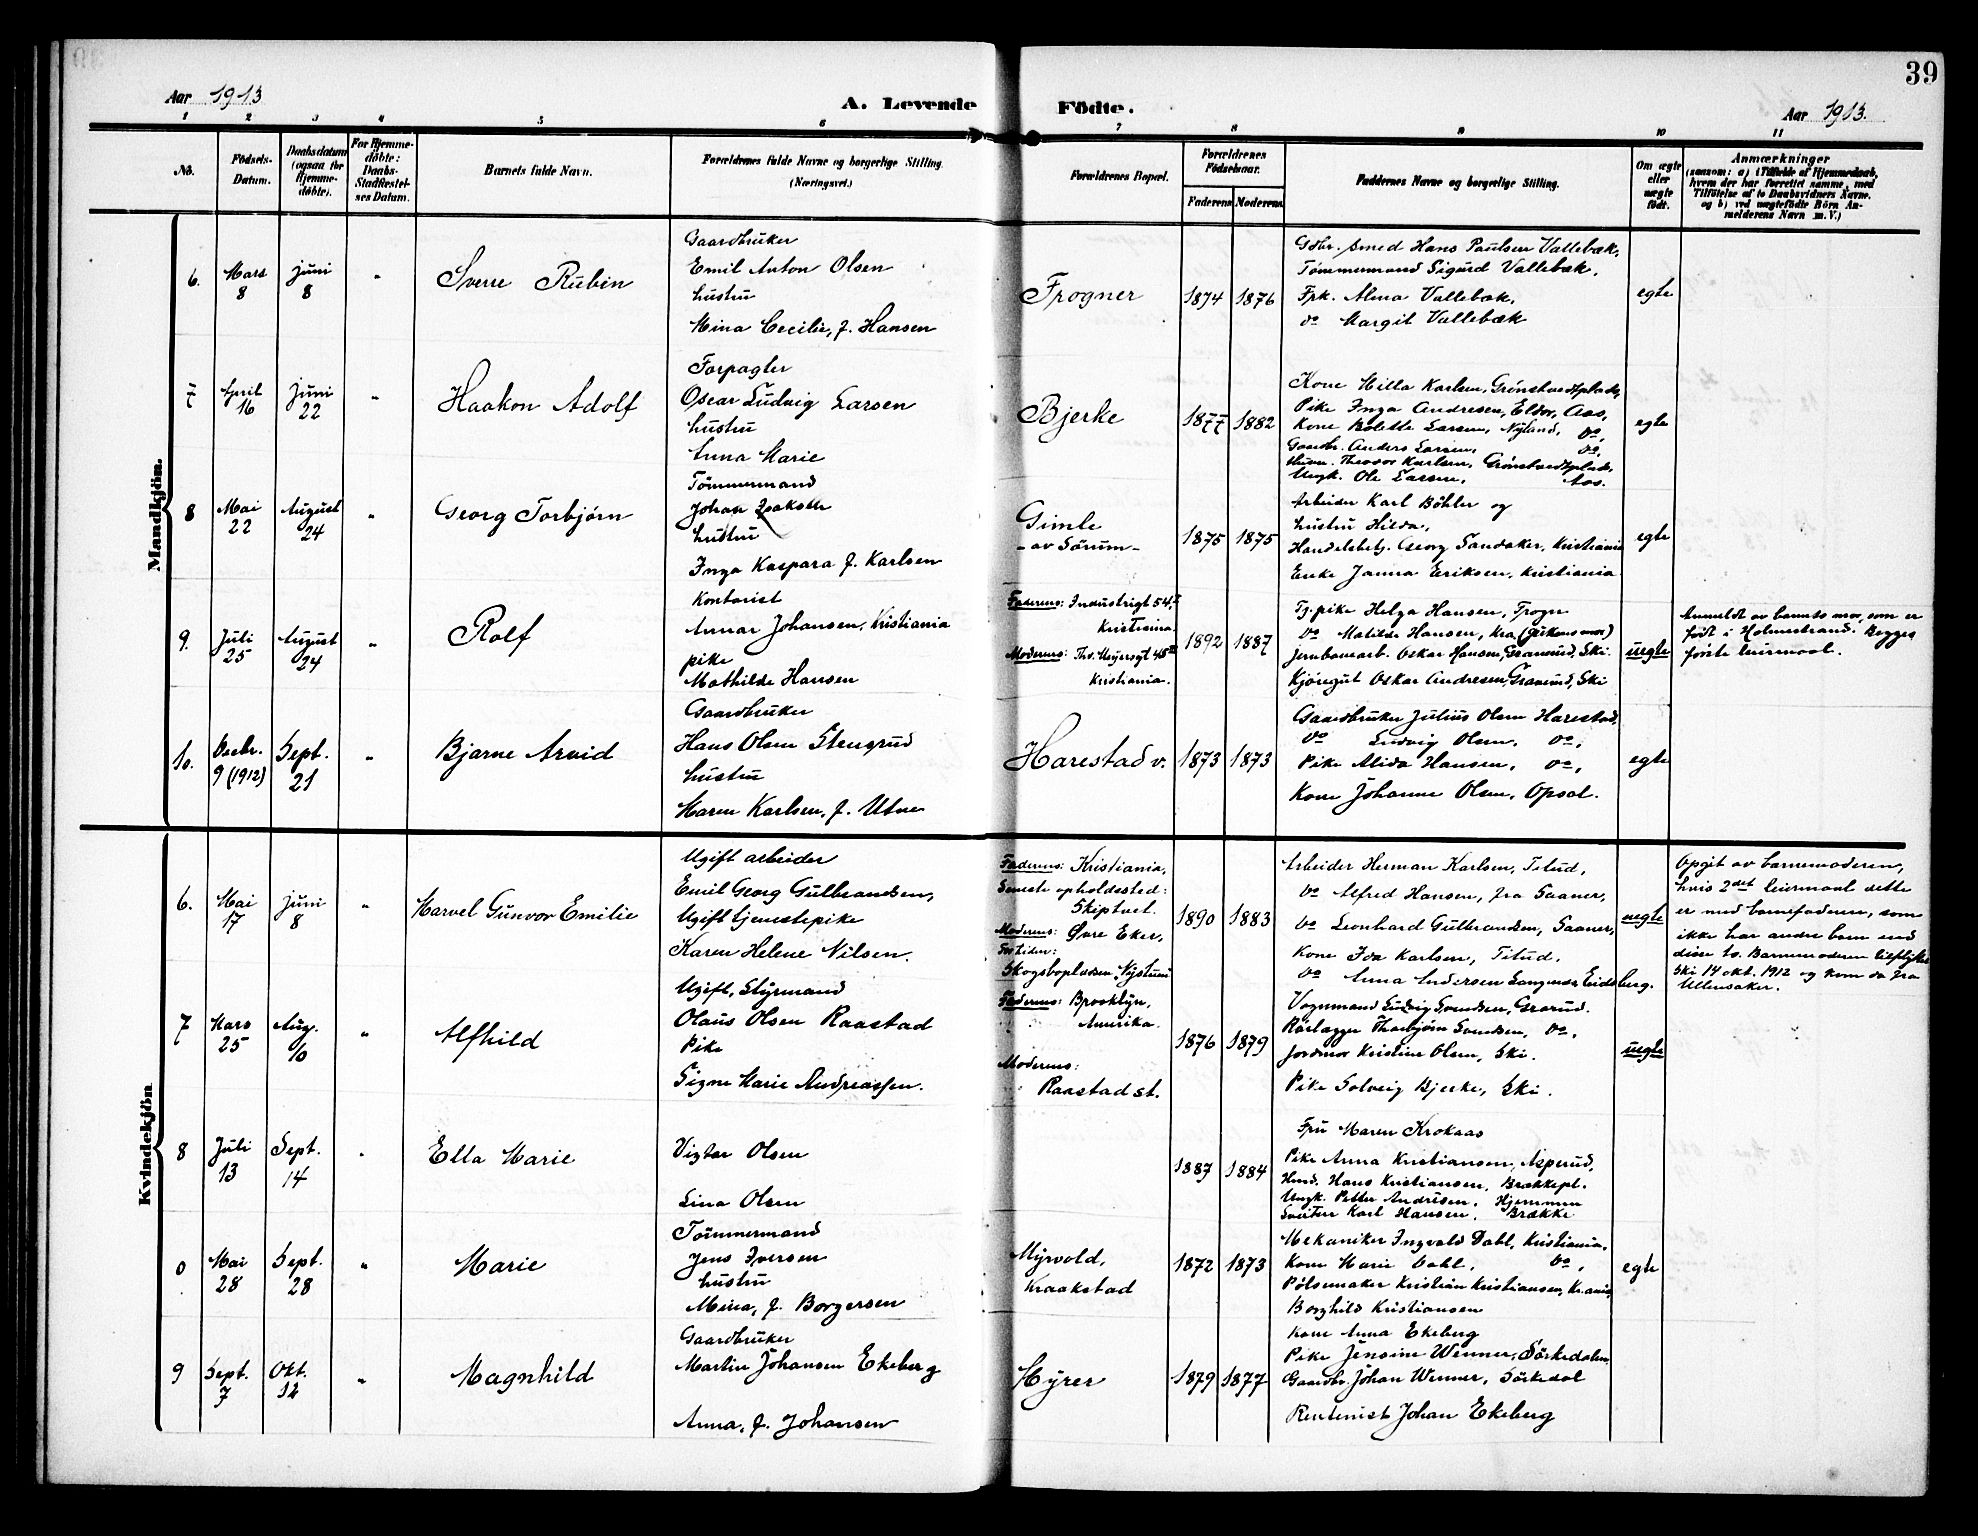 39
Aar 1913
A. Levende Födte.
Aar 1913.
1 2 3 4 5 6 7 8 9 10 11
No.
Födsels-
Datum.
Daabsdatum
(ogsaa for
Hjemme-
döbte).
For Hjemme-
döbte:
Daabs-
Stadfæstel-
ses Datum.
Barnets fulde Navn.
Forældrenes fulde Navne og borgerlige Stilling.
(Næringsvei.)
Forældrenes Bopæl.
Forældrenes
Födselsaar.
Faderens Moderens
Faddernes Navne og borgerlige Stilling.
Om ægte
eller
uægte
födt.
Anmærkninger
(saasom: a) i Tilfælde af Hjemmedaab,
hvem der har forrettet samme, med
Tilföielse af to Daabsvidners Navne.
og b) ved uægtefödte Börn An-
melderens Navn m. V.)
Mandkjön.
6.
Mars
8
Juni
8
"
Sverre Rubin
Gaardbruker
Emil Anton Olsen
hustru
Mina Cecilie, f. Hansen
Frogner
1874 1876
Gdbr. smed Hans Paulsen Vallebæk,
Tömmermand Sigurd Vallebæk,
Frk. Alma Vallebæk,
do Margit Vallebæk
egte
7
April
16
Juni
22
"
Haakon Adolf
Forpagter
Oscar Ludvig Larsen
hustru
Anna Marie
Bjerke
1877 1882
Kone Milla Karlsen,
Pike Inga Andresen, Eldor, Aas,
Kone Bolette Larsen, Nyland, do,
Gaardbr. Anders Larsen, do,
Theodor Karlsen,
Ungk. Ole Larsen, Aas.
egte
8
Mai
22
August
24
"
Georg Torbjørn
Tömmermand
Johan Isaksen
hustru
Inga Kaspara f. Karlsen
Gimle
- av Sörum -
1875 1875
Arbeider Karl Böhler og
hustru Hilda,
Handelsbetj. Georg Sandaker, Kristiania
Enke Janna Eriksen, Kristiania
egte
9.
Juli
25
August
24
"
Rolf
Kontorist
Arnar Johansen, Kristiania
pike
Mathilde Hansen
Faderens: Industrigt 54,
Kristiania.
Moderens: Thv. Meyersgt 45
Kristiania.
1892 1887
Tj.pike Helga Hansen, Frogn
do Matilde Hansen, Kra
Jernbanearb. Oskar Hansen, Granerud, Ski.
Oskar Andresen, Ski
uegte
Anmeldt av barnets mor, som er
født i Holmestrand. Begges
første leiermaal.
10.
Decbr.
9 (1912)
Sept.
21
"
Bjarne Arvid
Gaardbruker
Hans Olsen Stengrud
hustru
Maren Karlsen, f. Utne
Harestad v.
1873 1873
Gaardbruker Julius Olsen Harestad,
do Ludvig Olsen, do,
Pike Alida Hansen, do,
Kone Johanne Olsen, Opsal.
egte
Kvindekjön
6.
Mai
17
Juni
8
"
Marvel Gunvor Emilie
Ugift arbeider
Emil Georg Gulbrandsen,
Ugift tjenestepike
Karen Helene Nilsen.
Faderens: Kristiania,
Seneste opholdssted:
Skiptvet.
Moderens: Øvre Eker,
For tiden:
Skogsbopladsen, Nystuen
1890 1883
Arbeider Herman Karlsen, Titud,
do Alfred Hansen, fra Saaner,
do Leonhard Gulbrandsen, Saaner,
Kone Ida Karlsen, Titud.
do Anna Andersen Eidsberg.
uegte
Opgit av barnemoderen,
hvis 2det leiermaal dette
er med barnefaderen, som
ikke har andre barn end
disse to. Barnemoderen tilflyttet
Ski 14 okt. 1912 og kom da fra
Ullensaker.
7
Mars
25
Aug.
10
"
Alfhild
Ugift, Styrmand
Olaus Olsen Raastad
Pike
Signe Marie Andreassen.
Faderens: Brooklyn,
Amerika.
Moderens:
Raastad st.
1876 1879
Vognmand Ludvig Svendsen, Grorud.
Rørlægger Thorbjørn Svendsen, do,
Jordmor Kristine Olsen, Ski.
Pike Solveig Bjerke, Ski.
uegte
8
Juli
13
Sept.
14
"
Ella Marie
Vigtor Olsen
Lina Olsen
1887 1884
Fru Maren Krokaas
Pike Anna Kristiansen, Asperud,
Hans Kristiansen, Brækkepl.
Ungk. Petter Andrésen, Hjemmen
Karl Hansen, Brække
0
Mai
28
Sept.
28
"
Marie
Tömmermand
Jens Iversen
hustru
Mina, f. Borgersen
Myrvold,
Kraakstad
1872 1873
Mekaniker Ingvald Dahl, Kristiania.
Kone Marie Dahl, do,
Pölsemaker Kristian Kristiansen, Kr.ania,
Borghild Kristiansen
egte
9
Sept.
7
Okt.
12
"
Magnhild
Gaardbruker
Martin Johansen Ekeberg
Anna, f. Johansen
Myrer
1879 1877
Kone Anna Ekeberg
Pike Jensine Wenner, Sörkedalen,
Gaardbr. Johan Wenner, Sörkedal
Rentenist Johan Ekeberg